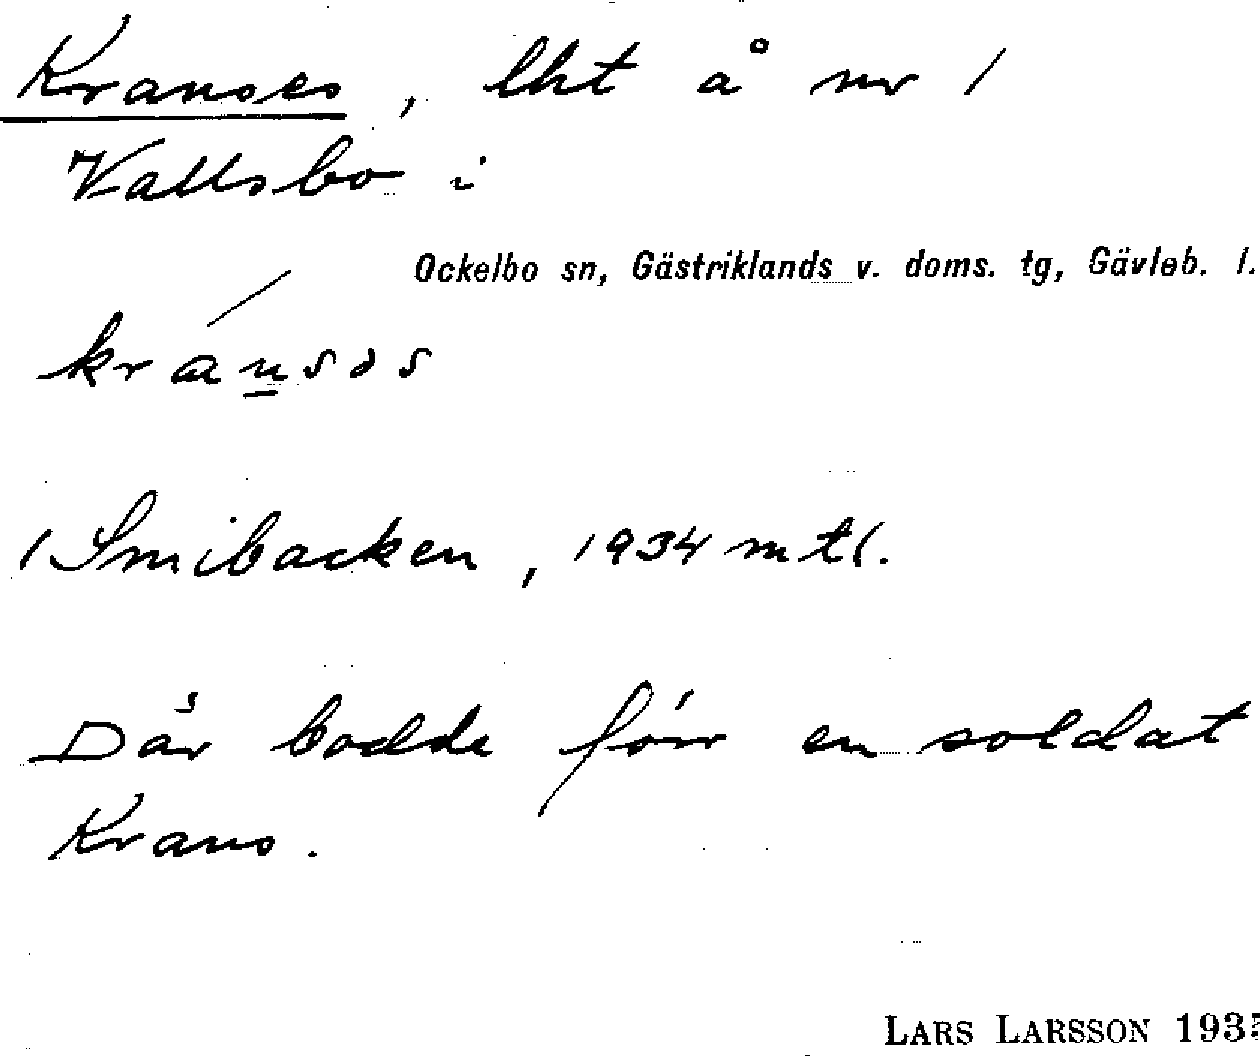 Kranses, lht å nr 1
Vallsbo i
Ockelbo sn, Gästriklands v. doms. tg, Gävleb. l.
kránsəs
/ Smibacken, 1934 mtl.
Där bodde förr en soldat
Krans.
LARS LARSSON 193